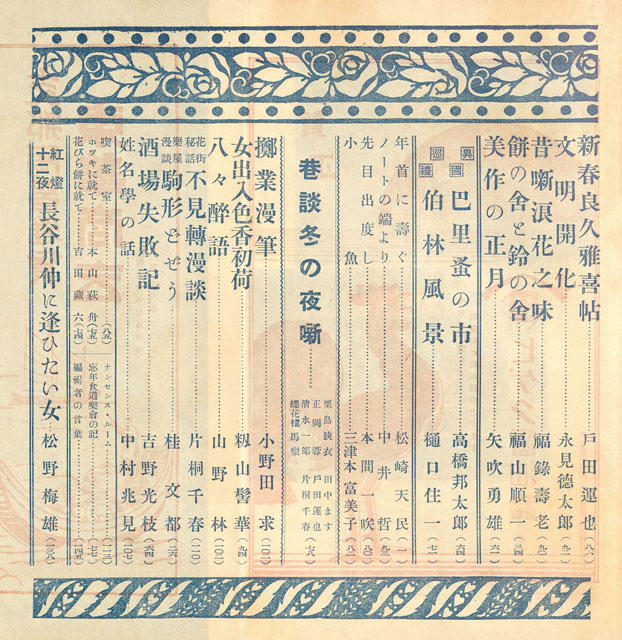 新春良久雅喜帖………戸田運也（八）
文明開化………永見德太郎（九二）
昔噺浪花之味………福錄壽老（九一）
餠の舍と鈴の舍………福山順一（三四）
美作の正月………矢吹勇雄（六一）
異國巡禮
巴里蚤の市………高橋邦太郎（六四）
伯林風景………樋口住一（七一）
年首に壽ぐ………松崎天民（一）
ノートの端より………中井哲（九三）
先目出度し………本間一咲（八八）
小魚………三津本富美子（八二）
巷談冬の夜噺
栗島狹衣 田中ます
正岡蓉 戸田運也
清水一郎 片桐千春
蝶花樓馬樂（七八）
擲業漫筆………小野田求（一〇二）
女出入色香初荷………籾山髻華（九四）
八々醉語………山野林（一〇二）
花街秘話 不見轉漫談………片桐千春（一一〇）
樂屋漫談 駒形どぜう………桂文都（二六）
酒場失敗記………吉野光枝（六四）
姓名學の話………中村兆見（一〇七）
喫茶室………（八五）
ホツキに就て………本山荻舟（七五）
花びら餠に就て………吉田 六（七四）
ナンセンス・ルーム………（一一三）
忘年食道樂會の記………（七七）
編輯者の言葉………（一四五）
紅燈十二夜 長谷川伸に逢ひたい女………松野梅雄（一三八）